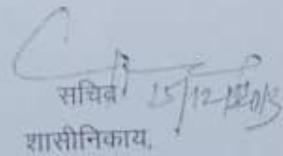 सचिव 15/12/2013
शासीनिकाय,